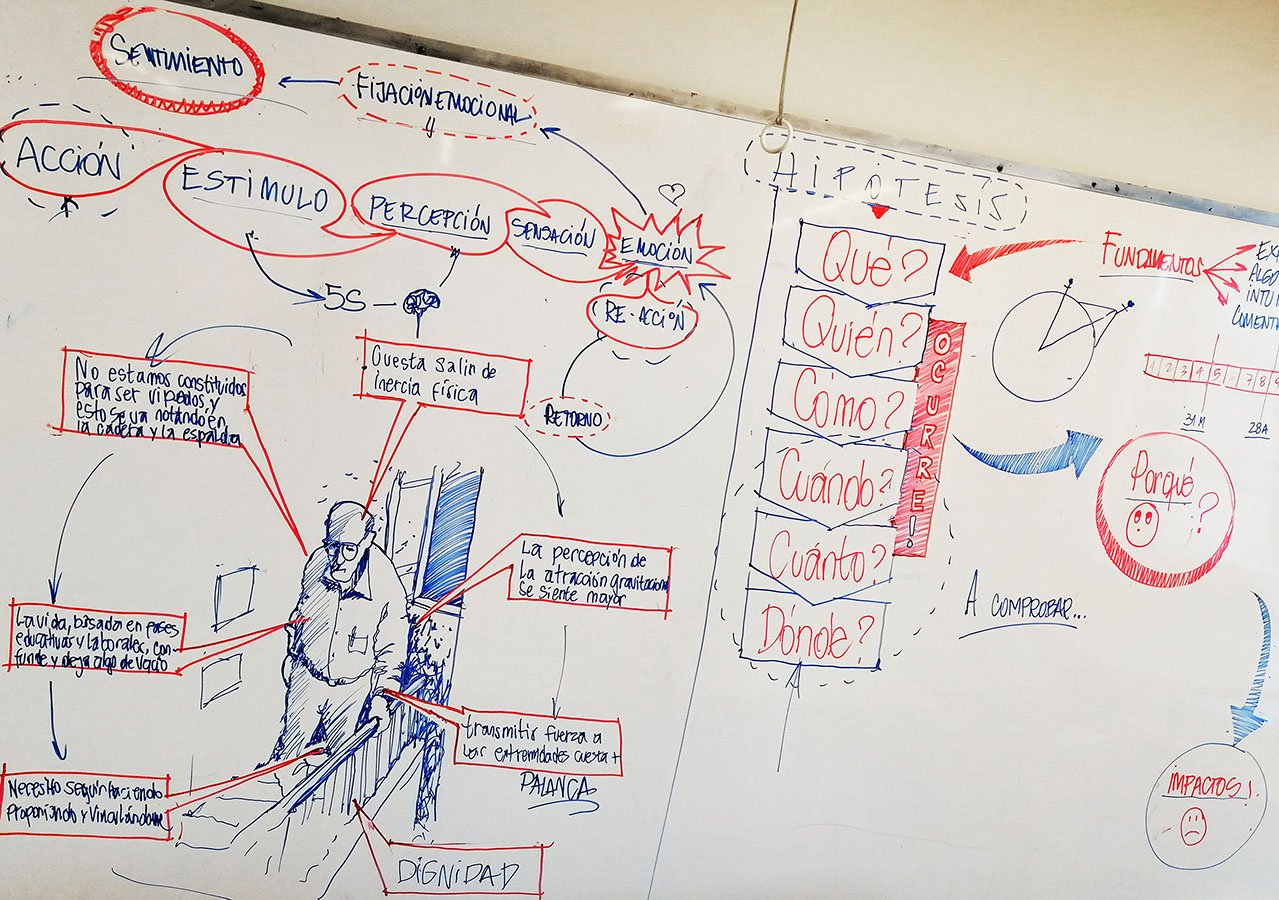 SENTIMIENTO
FIJACIÓN EMOCIONAL
y
ACCIÓN
ESTIMULO
PERCEPCIÓN
SENSACIÓN
EMOCIÓN
RE-ACCIÓN
RETORNO
5S
No estamos constituidos
para ser vipedos, y
esto se va notando, en
la cadera y la espalda
Cuesta salir de
inercia física
La vida, basada en fases
educativas y laborales, con-
funde y deja algo de vacío
La percepción de
la atracción gravitacional
se siente mayor
transmitir fuerza a
las extremidades cuesta +
PALANCA
Necesito seguir haciendo
proponiendo y vinculándome
DIGNIDAD
HIPOTESÍS
Qué?
Quién?
Cómo?
Cuándo?
Cuánto?
Dónde?
OCURRE!
A COMPROBAR...
FUNDAMENTOS
EXP
ALGO
INTUI
COMENTA
1 2 3 4 5 7 8 9
31M
28A
Porqué
?
IMPACTOS!